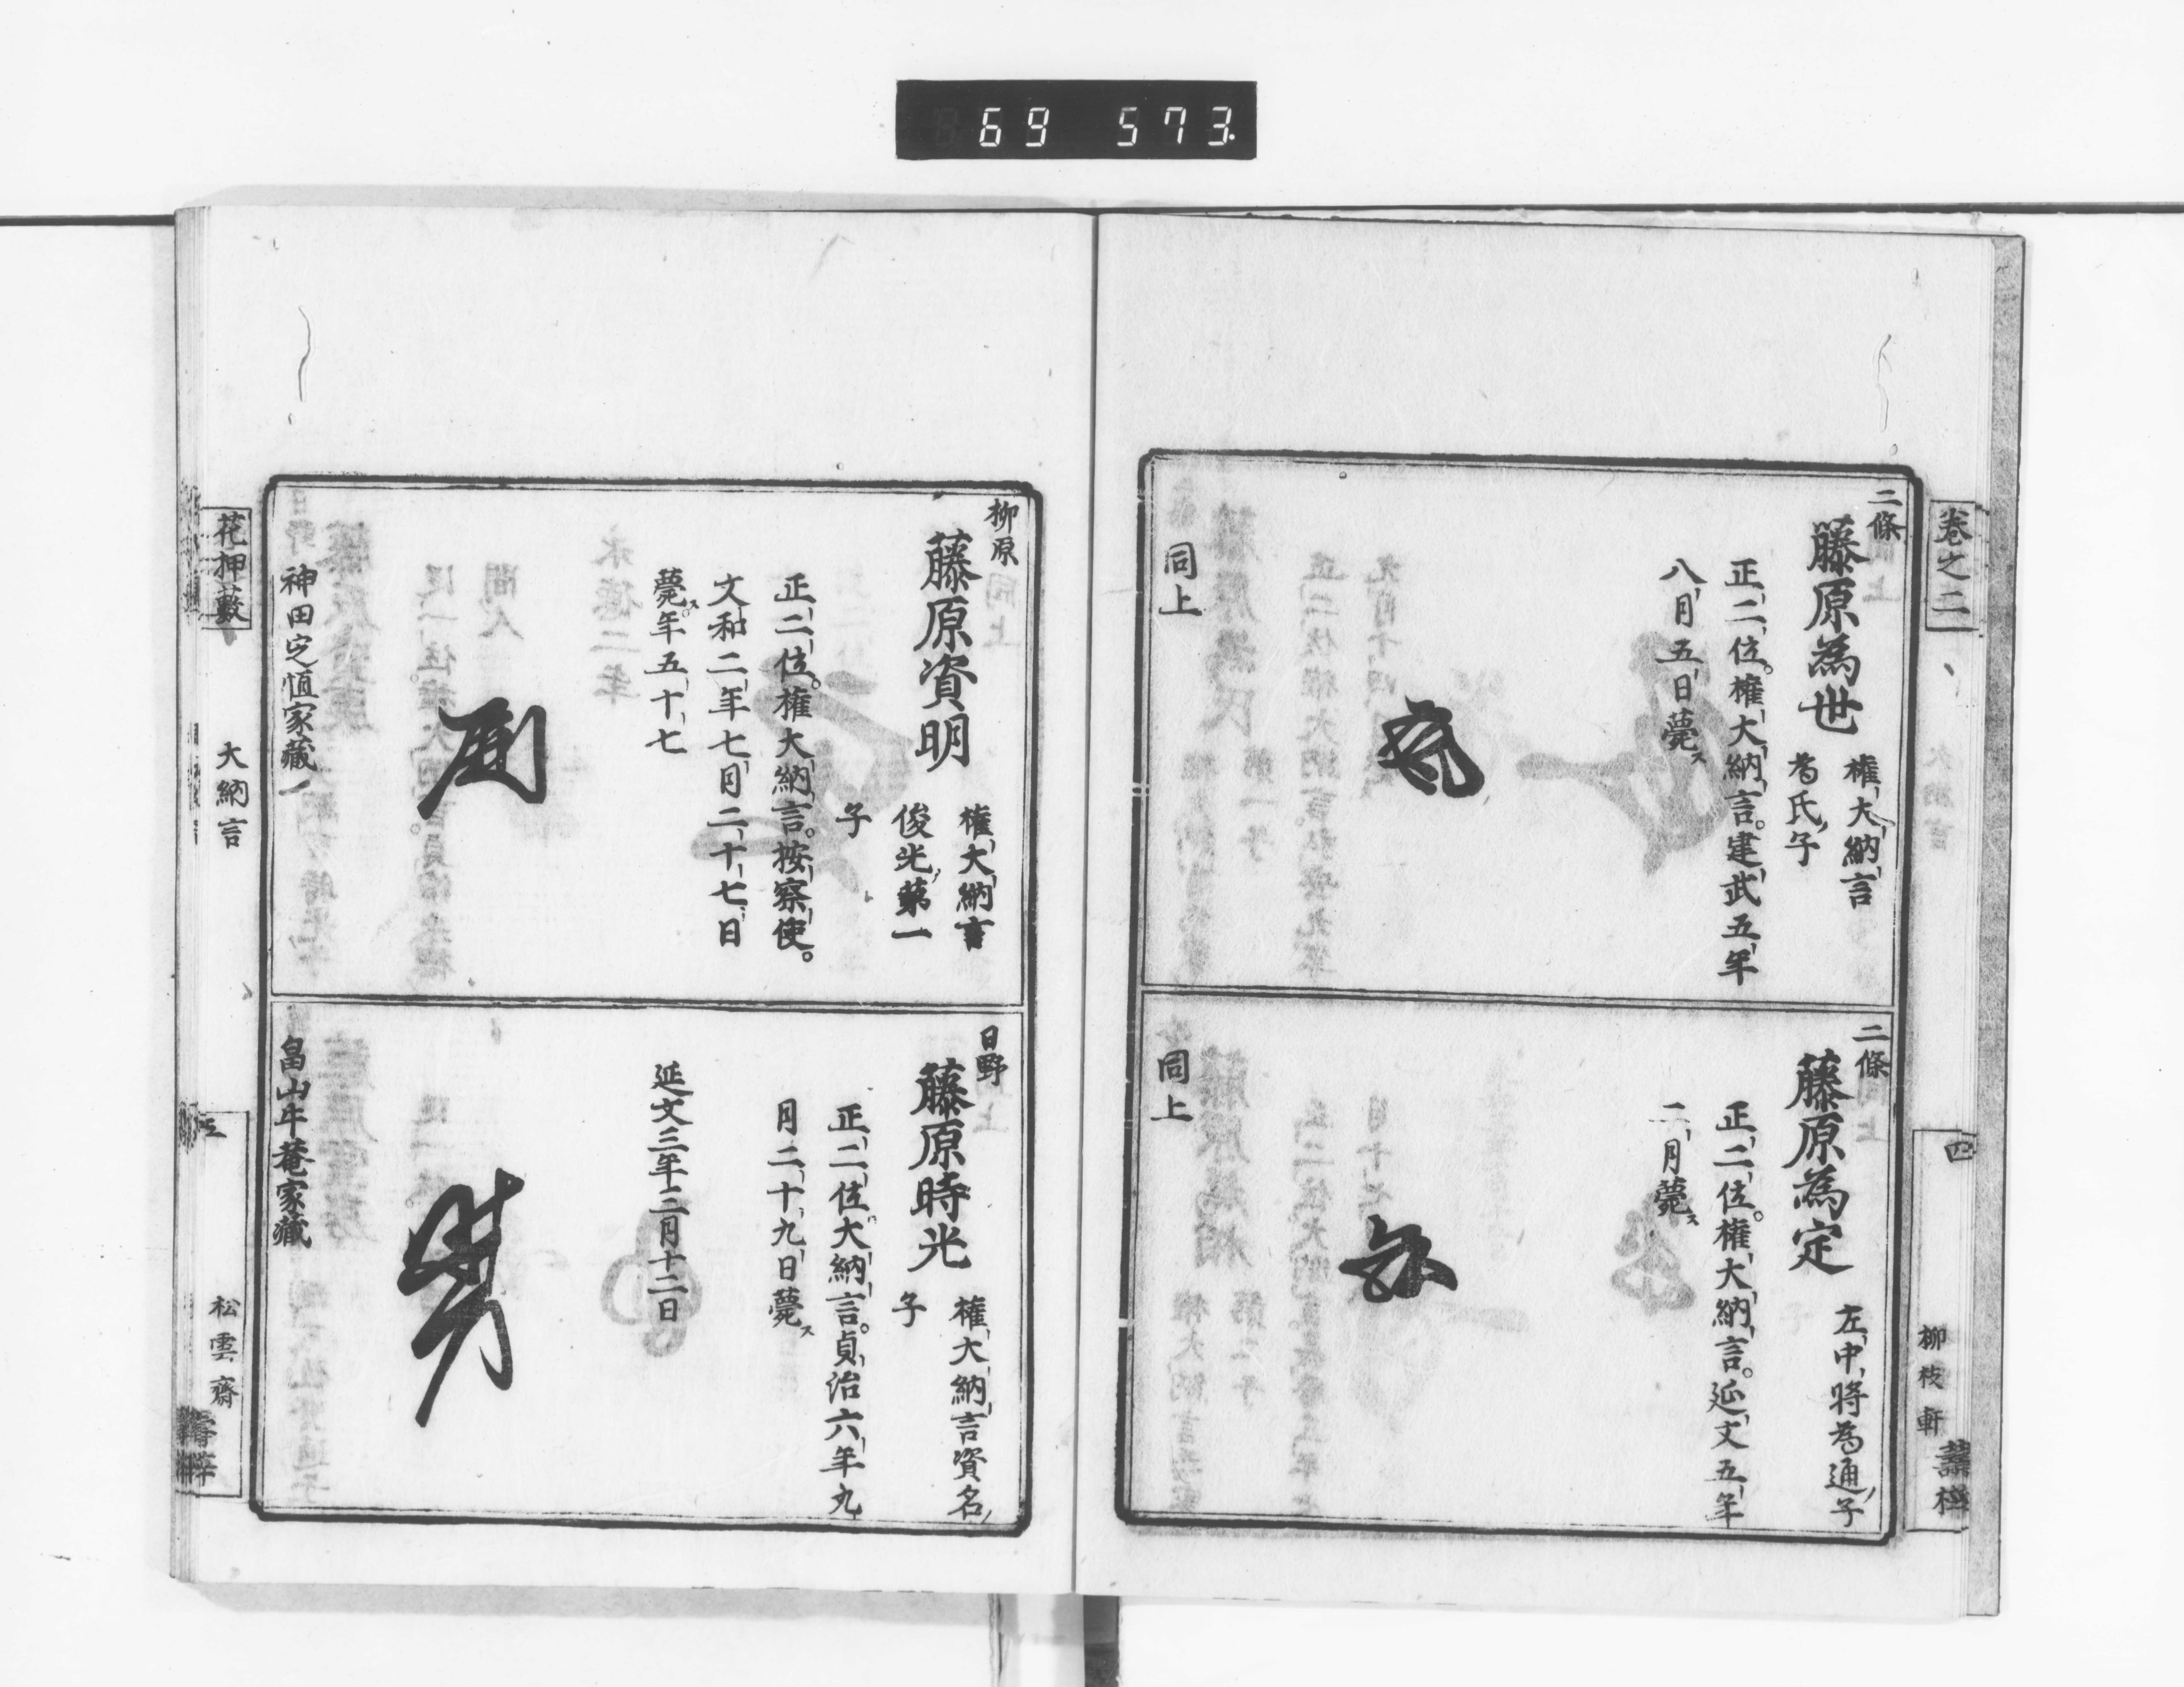 69 573.
卷之二
四
柳枝軒
二條
藤原為世
權大納言
為氏子
正二位。權大納言。建武五年
八月五日薨ス
同上
二條
藤原為定
左中將為通子
正二位。權大納言。延文五年
二月薨ス
同上
柳原
藤原資明
權大納言
俊光第一
子
正二位。權大納言。按察使。
文和二年七月二十七日
薨ス。年五十七
神田定恒家藏
日野
藤原時光
權大納言資名
子
正二位。大納言。貞治六年九
月二十九日薨ス
延文三年二月十二日
畠山牛菴家藏
花押藪
大納言
松雲齋